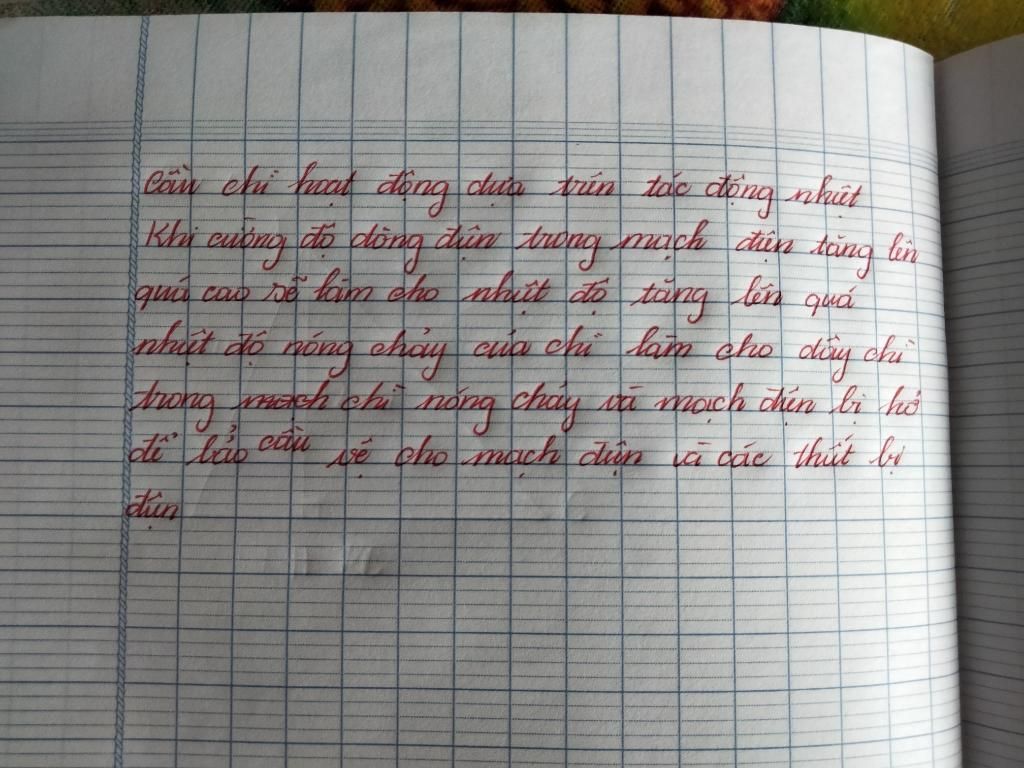 Cầu chì hoạt động dựa trên tác động nhiệt
Khi cường độ dòng điện trong mạch điện tăng lên
quá cao sẽ làm cho nhiệt độ tăng lên quá
nhiệt độ nóng chảy của chì làm cho dây chì
trong mạch cầu chì nóng chảy và mạch điện bị hở
để bảo vệ cho mạch điện và các thiết bị
điện